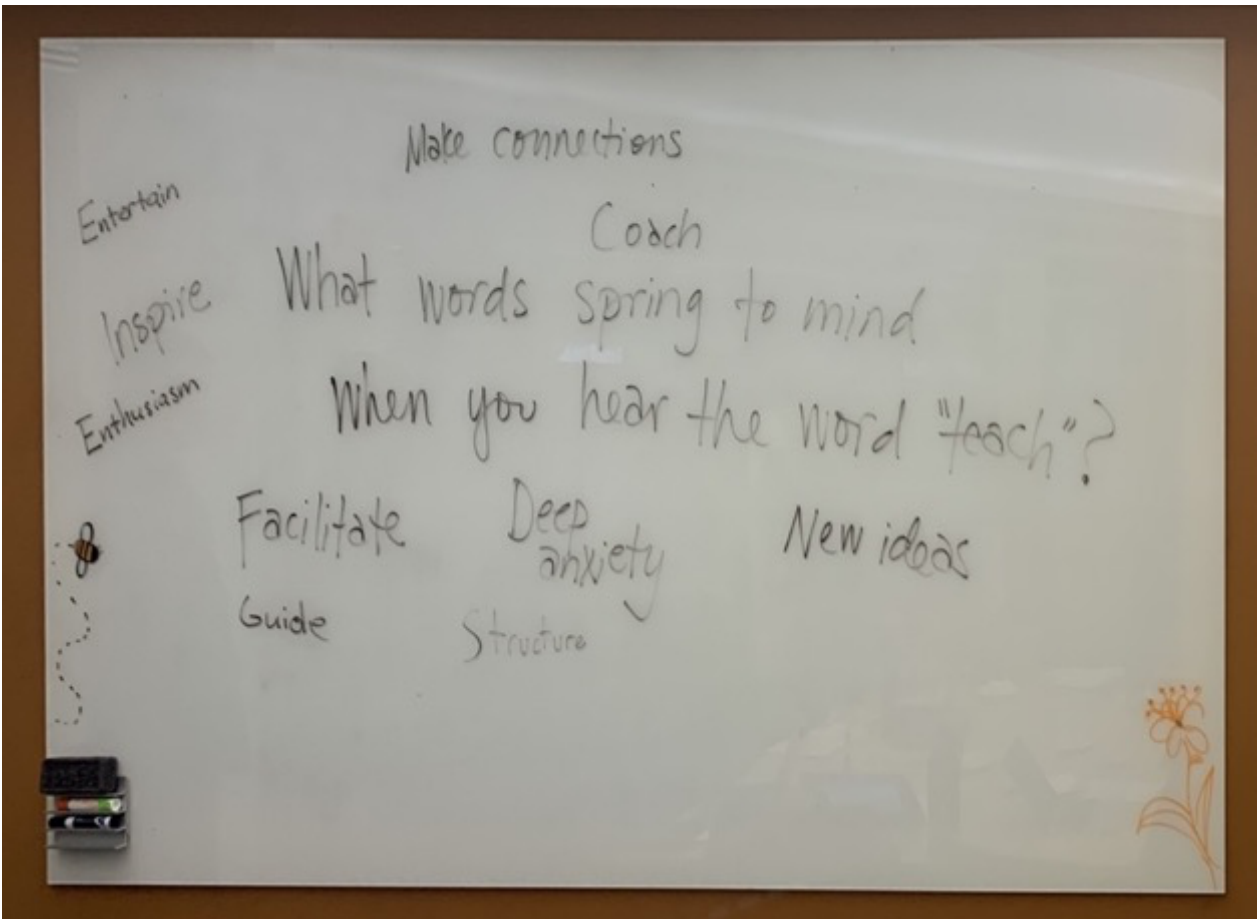 Make connections
Entertain
Coach
Inspire
What words spring to mind
When you hear the word "teach"?
Enthusiasm
Facilitate
Deep
anxiety
New ideas
Guide
Structure